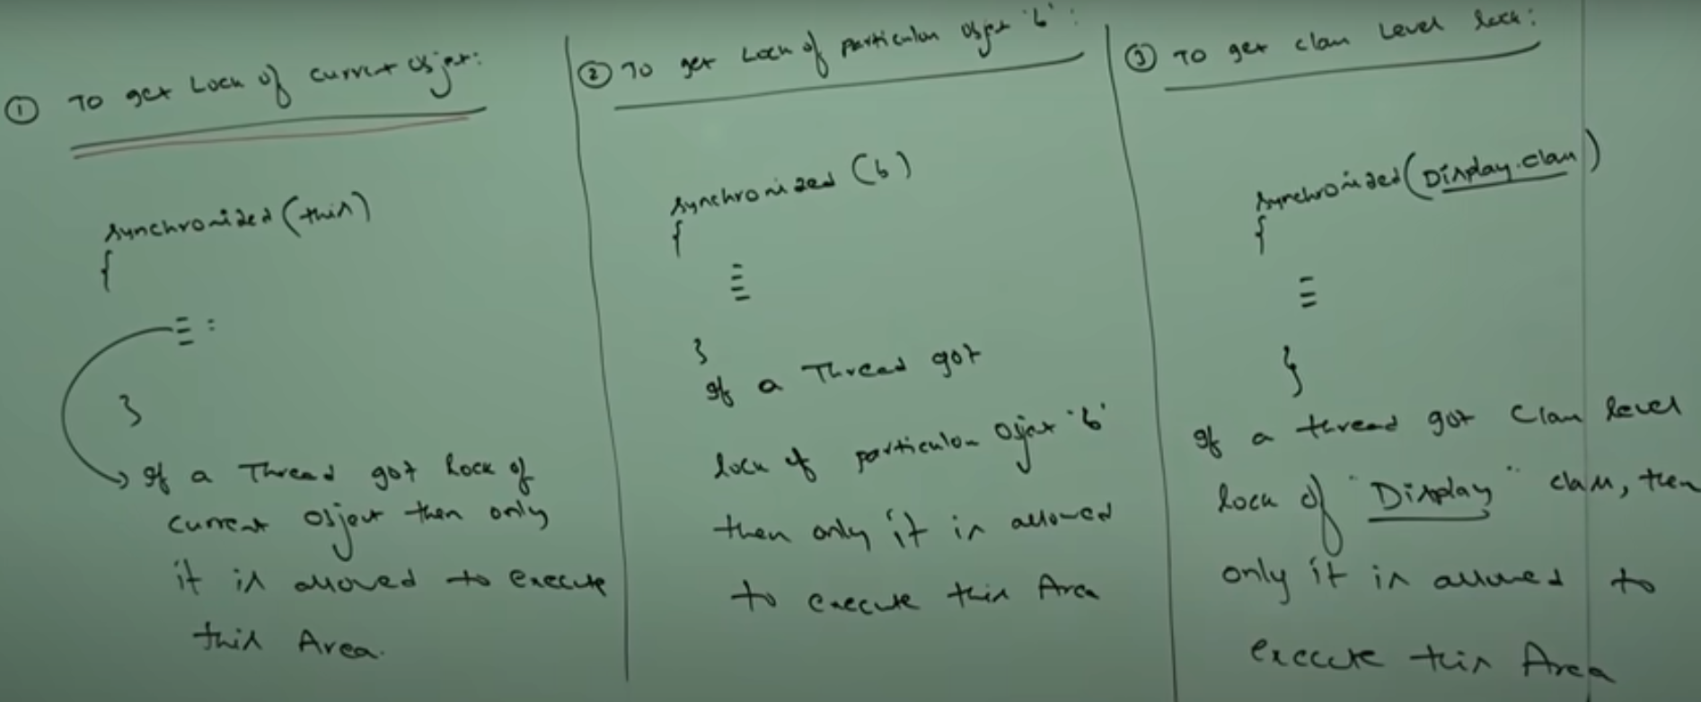 ① To get Lock of current object:
synchronized(this)
{
≡ :
}
→ If a Thread got Lock of
current object then only
it is allowed to execute
this Area.
② To get Lock of particular object 'b':
synchronized (b)
{
}
If a Thread got
lock of particular object 'b'
then only it is allowed
to execute this Area
③ To get class Level lock:
synchronized(Display.class)
{
≡
}
If a thread got class level
lock of "Display" class, then
only it is allowed to
execute this Area